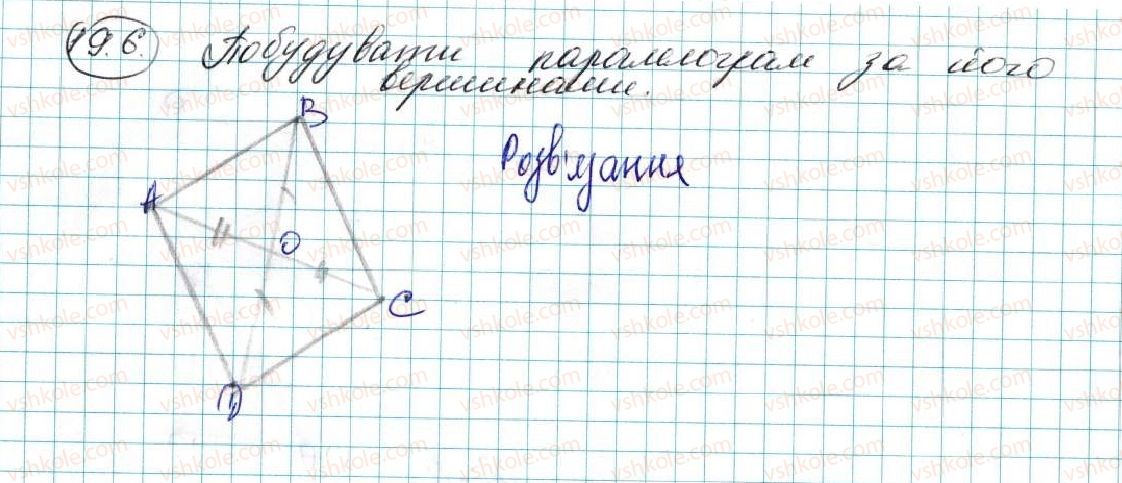 19.6. Побудувати паралелограм за його
вершинами.
B
Розв'язання
A
O
C
D
vshkole.com